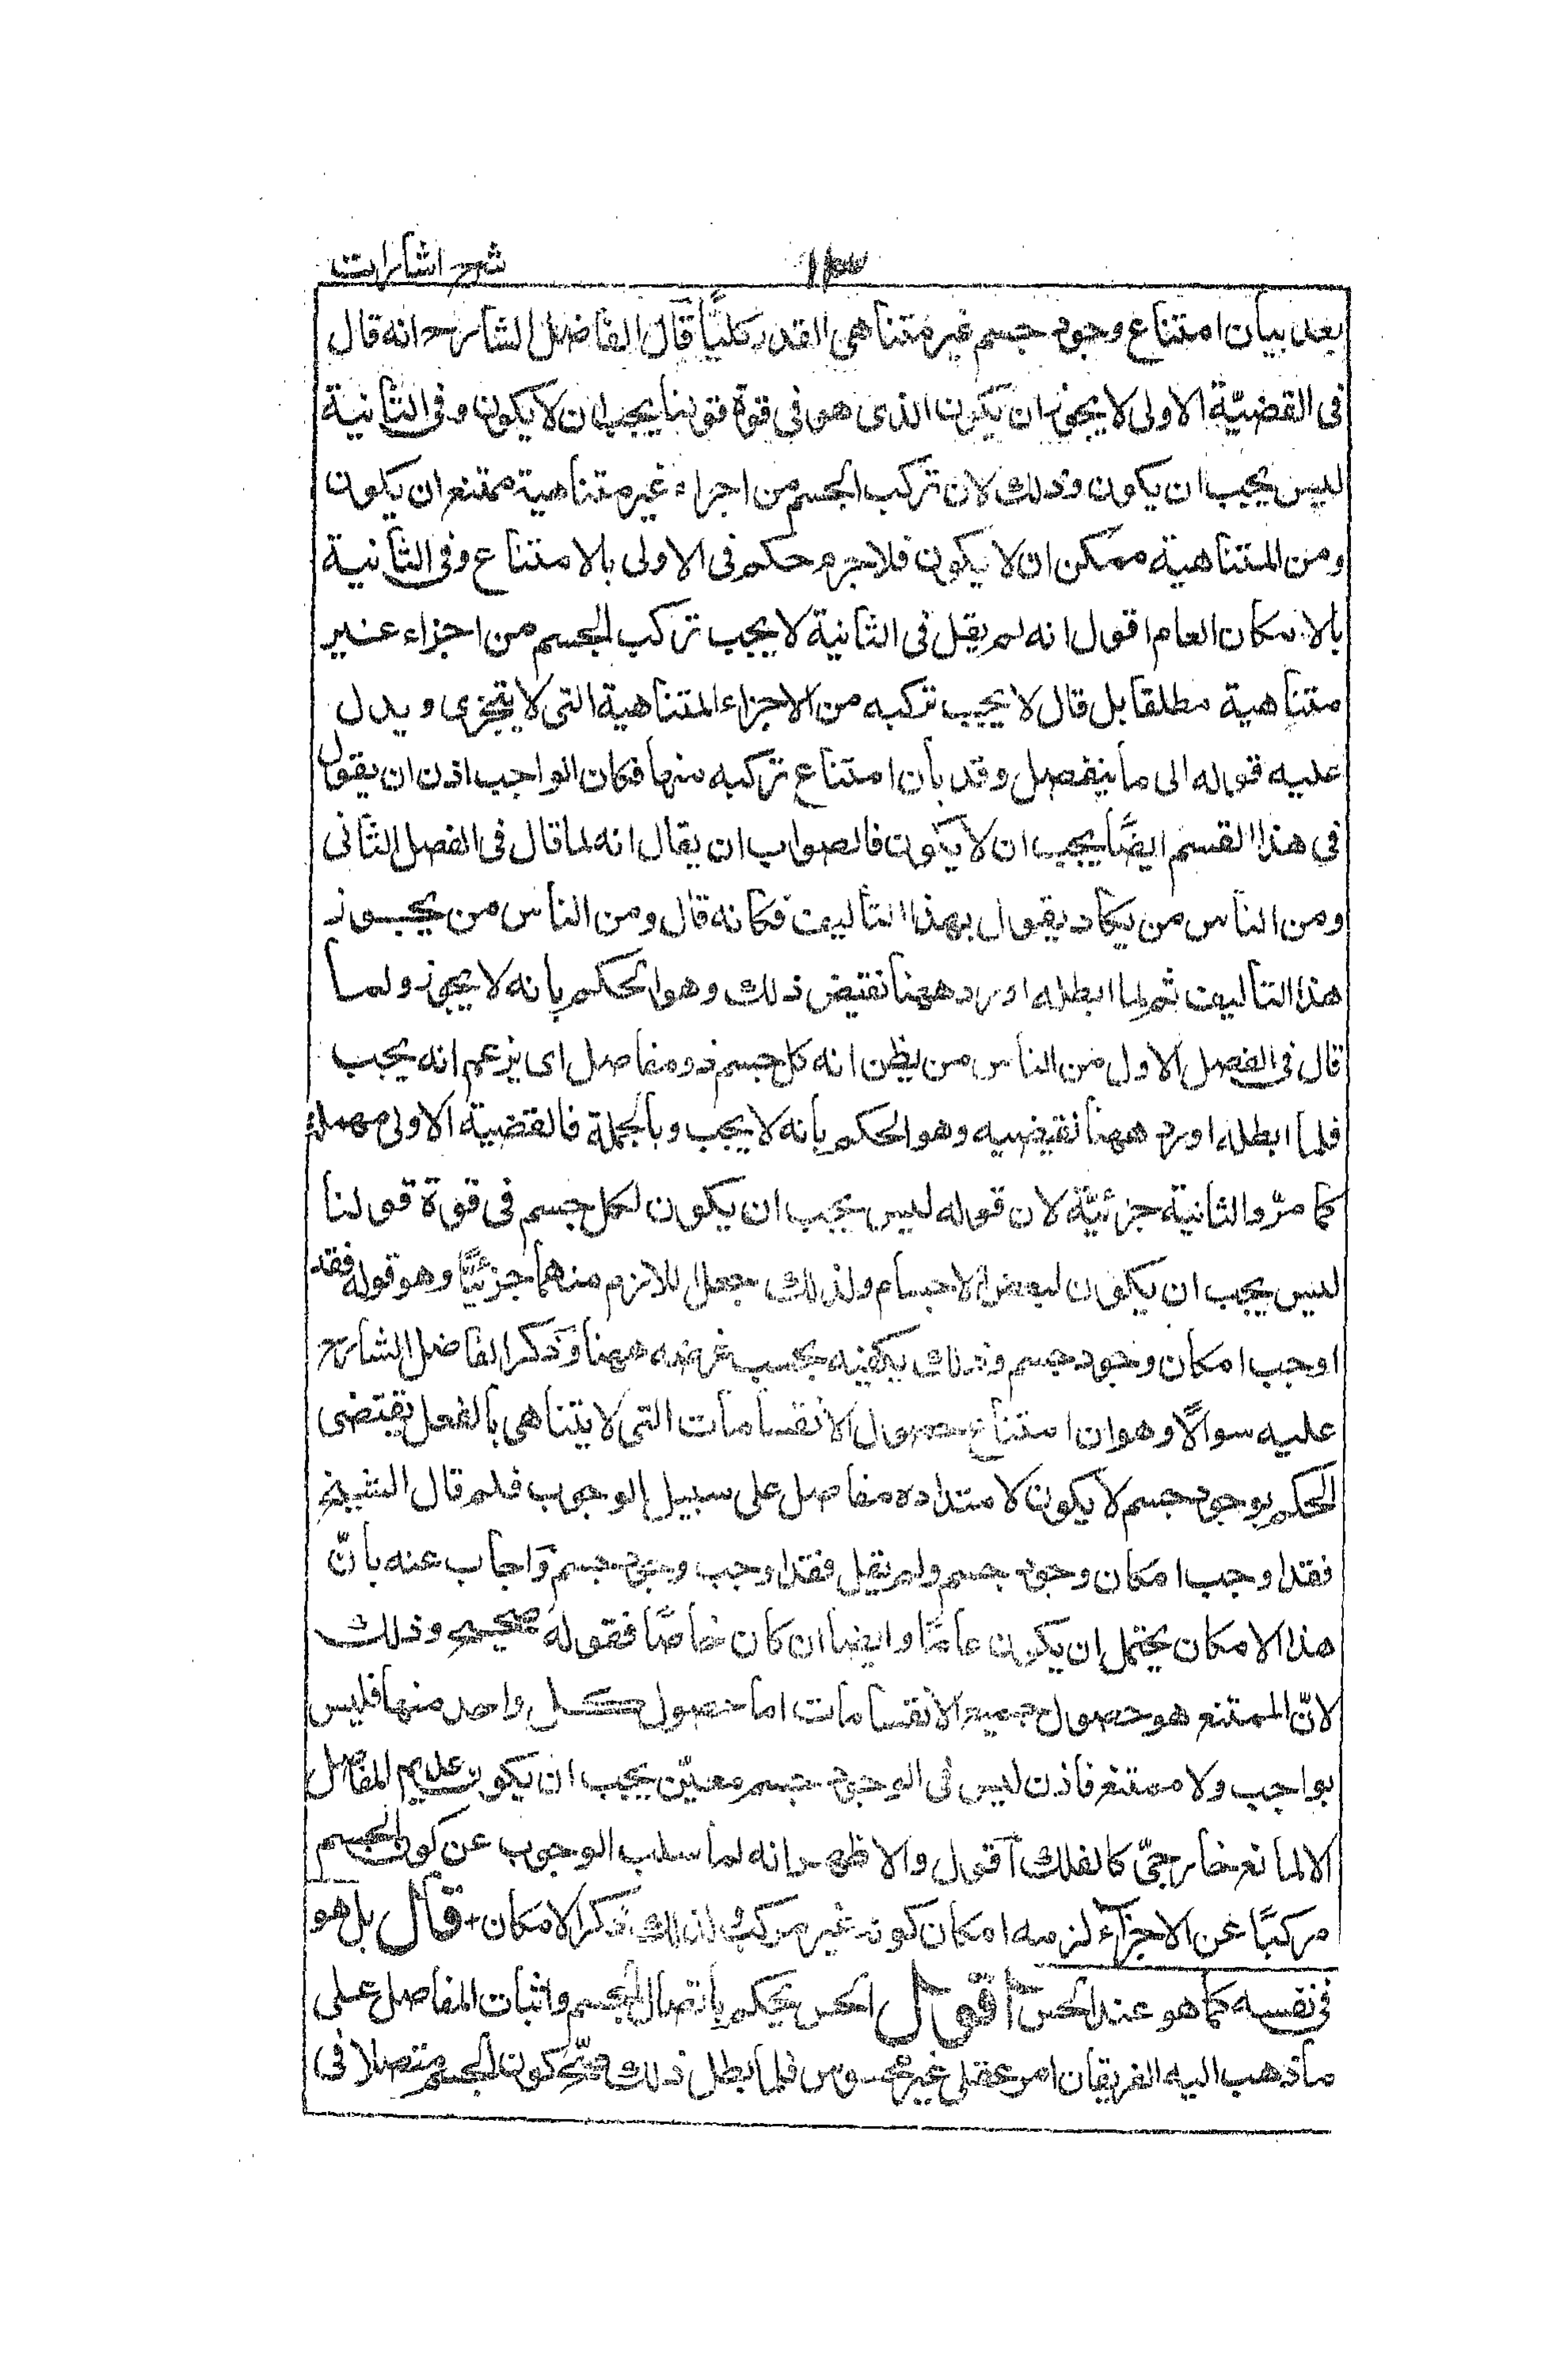 ١١٣ شرح اشارات
بعد بيان امتناع وجود جسم غير متناهى القدر كليًّا قال الفاضل الشارح انه قال
فى القضيّة الاولى لا يجوز ان يكون الذى هو فى قوة قولنا يجب ان لا يكون وفى الثانية
ليس يجب ان يكون وذلك لان تركب الجسم من اجزاء غير متناهية ممتنع ان يكون
ومن المتناهية ممكن ان لا يكون فلا جرم حكم فى الاولى بالامتناع وفى الثانية
بالامكان العام اقول انه لم يقل فى الثانية لا يجب تركب الجسم من اجزاء غير
متناهية مطلقا بل قال لا يجب تركبه من الاجزاء المتناهية التى لا يتجزى ويدل
عليه قوله الى ما ينفصل وقد بان امتناع تركبه منها فكان الواجب اذن ان يقول
فى هذا القسم ايضًا يجب ان لا يكون فالصواب ان يقال انه لما قال فى الفصل الثانى
ومن الناس من يكاد يقول بهذا التأليف فكانه قال ومن الناس من يجوز
هذا التأليف ثم لما ابطله اورد ههنا نقيض ذلك وهو الحكم بانه لا يجوز ولما
قال فى الفصل الاول من الناس من يظن انه كل جسم ذو مفاصل اى يزعم انه يجب
فلما ابطله اورد ههنا نقيضيه وهو الحكم بانه لا يجب وبالجملة فالقضية الاولى مهملة
كما مرّ والثانية جزئيّة لان قوله ليس يجب ان يكون لكل جسم فى قوة قولنا
ليس يجب ان يكون لبعض الاجسام ولذلك جعل اللازم منهما جزئيًّا وهو قوله فقد
اوجب امكان وجود جسم وذلك يكفيه بحسب غرضه ههنا وذكر الفاضل الشارح
عليه سوالًا وهو ان امتناع حصول الانقسامات التى لا يتناهى بالفعل يقتضى
الحكم بوجود جسم لا يكون لامتداده مفاصل على سبيل الوجوب فلم قال الشيخ
فقد اوجب امكان وجود جسم ولم يقل فقد اوجب وجود جسم واجاب عنه بانّ
هذا الامكان يحتمل ان يكون عامًّا وايضا ان كان خاصًّا فقوله صحيح وذلك
لانّ الممتنع هو حصول جميع الانقسامات اما حصول كل واحد منها فليس
بواجب ولا ممتنع فاذن ليس فى الوجود جسم معيّن يجب ان يكون عديم المفاصل
الا لمانع خارجىّ كالفلك اقول والاظهر انه لما سلب الوجوب عن كون الجسم
مركبًا عن الاجزاء لزمه امكان كونه غير مركب لذلك ذكر الامكان قال بل هو
فى نفسه كما هو عند الحس اقول الحس يحكم باتصال الجسم واثبات المفاصل على
ما ذهب اليه الفريقان امر عقلى غير محسوس فلما بطل ذلك صحّ كون الجسم متصلا فى